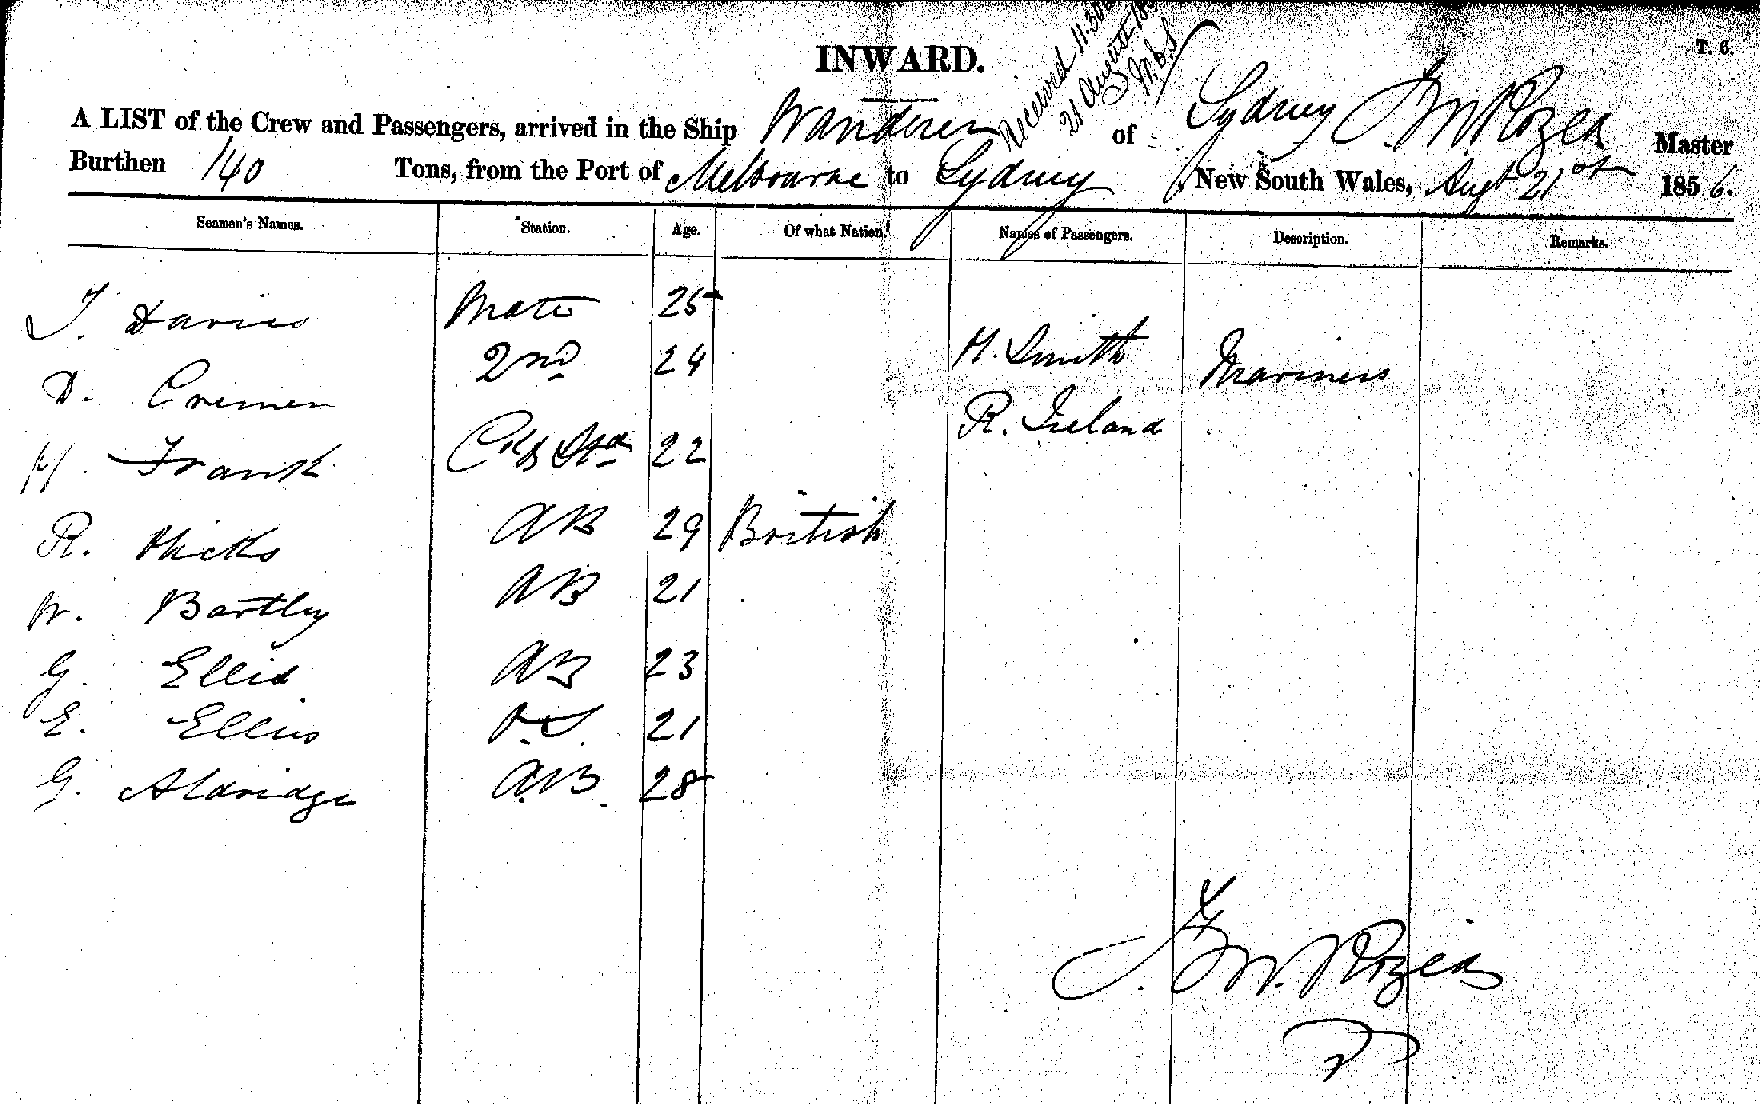 T. 6.
INWARD.
Received 11.30
21 August
A LIST of the Crew and Passengers, arrived in the Ship Wanderer of Sydney Master
Burthen 140 Tons, from the Port of Melbourne to Sydney, New South Wales, Augt 21st 1856.
Seamen's Names. Station. Age. Of what Nation. Names of Passengers. Description. Remarks.
T. Davies Mate 25
D. Cremen 2nd 24 H. Smith Mariners
H. Frank 22 R. Ireland
R. Hicks AB 29 British
W. Bartley AB 21
G. Ellis AB 23
E. Ellis O.S. 21
G. Aldridge A.B. 28